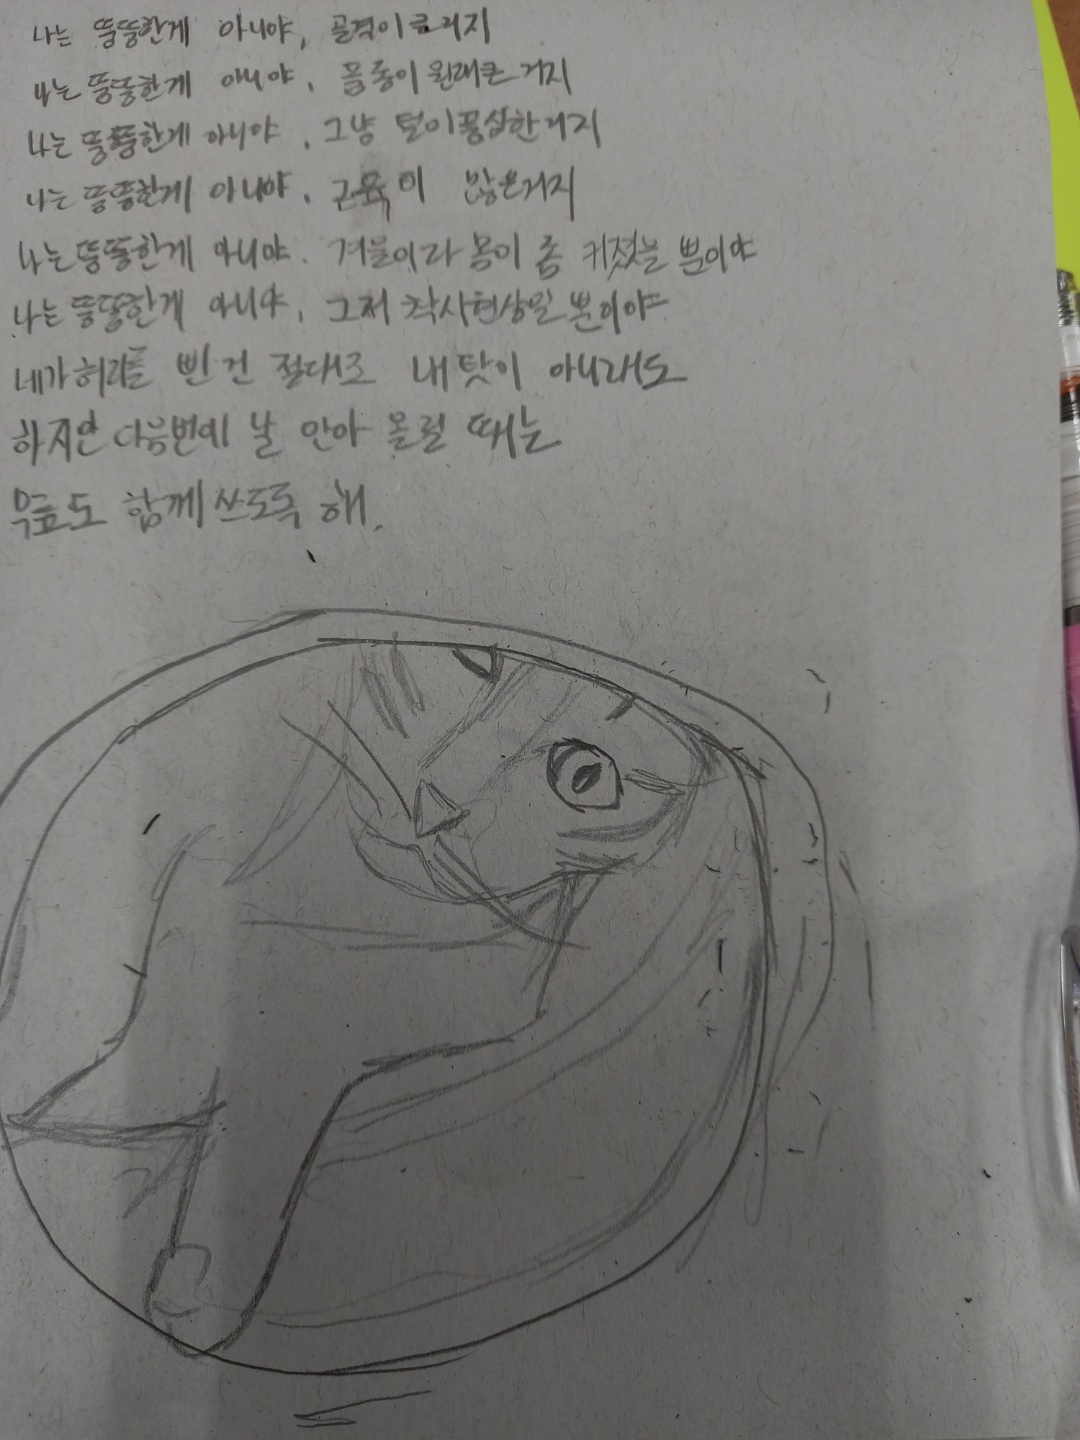 나는 뚱뚱한게 아니야, 골격이 큰거지
나는 뚱뚱한게 아니야, 몸통이 원래큰 거지
나는 뚱뚱한게 아니야, 그냥 털이풍성한거지
나는 뚱뚱한게 아니야, 근육이 많은거지
나는 뚱뚱한게 아니야. 겨울이라 몸이 좀 커졌을 뿐이야
나는 뚱뚱한게 아니야, 그저 착시현상일 뿐이야
네가 허리를 삔 건 절대로 내 탓이 아니래도
하지만 다음번에 날 안아 올릴 때는
무릎도 함께 쓰도록 해.